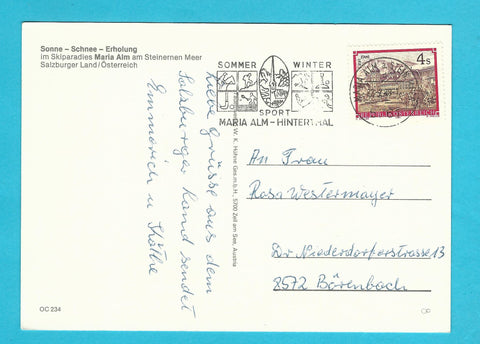 Sonne – Schnee – Erholung
im Skiparadies Maria Alm am Steinernen Meer
Salzburger Land/Österreich
SOMMER WINTER
SPORT
MARIA ALM - HINTERTHAL
4 S
REPUBLIK ÖSTERREICH
Liebe Grüsse aus dem
Salzburger Land sendet
Emmerich u. Käthe
W. K. Hühne Ges.m.b.H., 5700 Zell am See, Austria
An Frau
Rosa Westermayer
Dr Niederdorferstrasse 13
8572 Bärenbach
OC 234